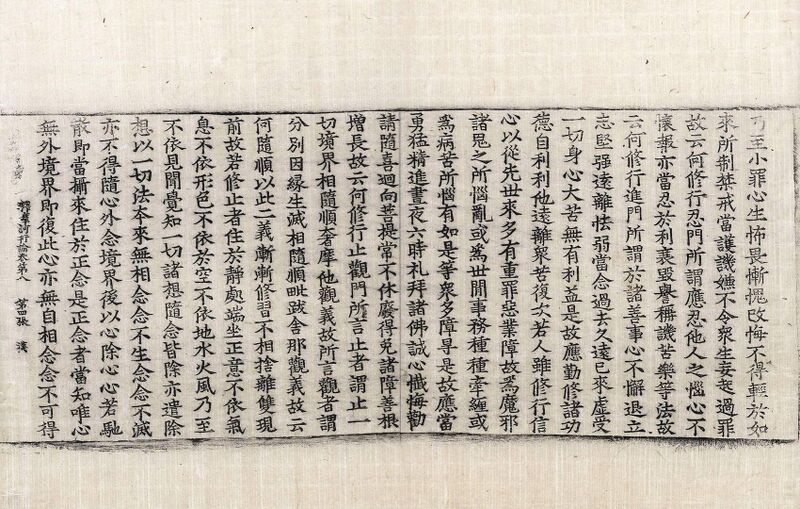 乃至小罪心生怖畏慚愧改悔不得輕於如
來所制禁戒當護譏嫌不令衆生妄起過罪
故云何修行忍門所謂應忍他人之惱心不
懷報亦當忍於利衰毀譽稱譏苦樂等法故
云何修行進門所謂於諸善事心不懈退立
志堅强遠離怯弱當念過去久遠已來虛受
一切身心大苦無有利益是故應勤修諸功
德自利利他遠離衆苦復次若人雖修行信
心以從先世來多有重罪惡業障故爲魔邪
諸鬼之所惱亂或爲世間事務種種牽纏或
爲病苦所惱有如是等衆多障㝵是故應當
勇猛精進晝夜六時礼拜諸佛誠心懺悔勸
請隨喜迴向菩提常不休廢得免諸障善根
增長故云何修行止觀門所言止者謂止一
切境界相隨順奢摩他觀義故所言觀者謂
分別因緣生滅相隨順毗鉢舍那觀義故云
何隨順以此二義漸漸修習不相捨離雙現
前故若修止者住於靜處端坐正意不依氣
息不依形色不依於空不依地水火風乃至
不依見聞覺知一切諸想隨念皆除亦遣除
想以一切法本來無相念念不生念念不滅
亦不得隨心外念境界後以心除心心若馳
散即當攝來住於正念是正念者當知唯心
無外境界即復此心亦無自相念念不可得
釋摩訶衍論卷第八 第四張